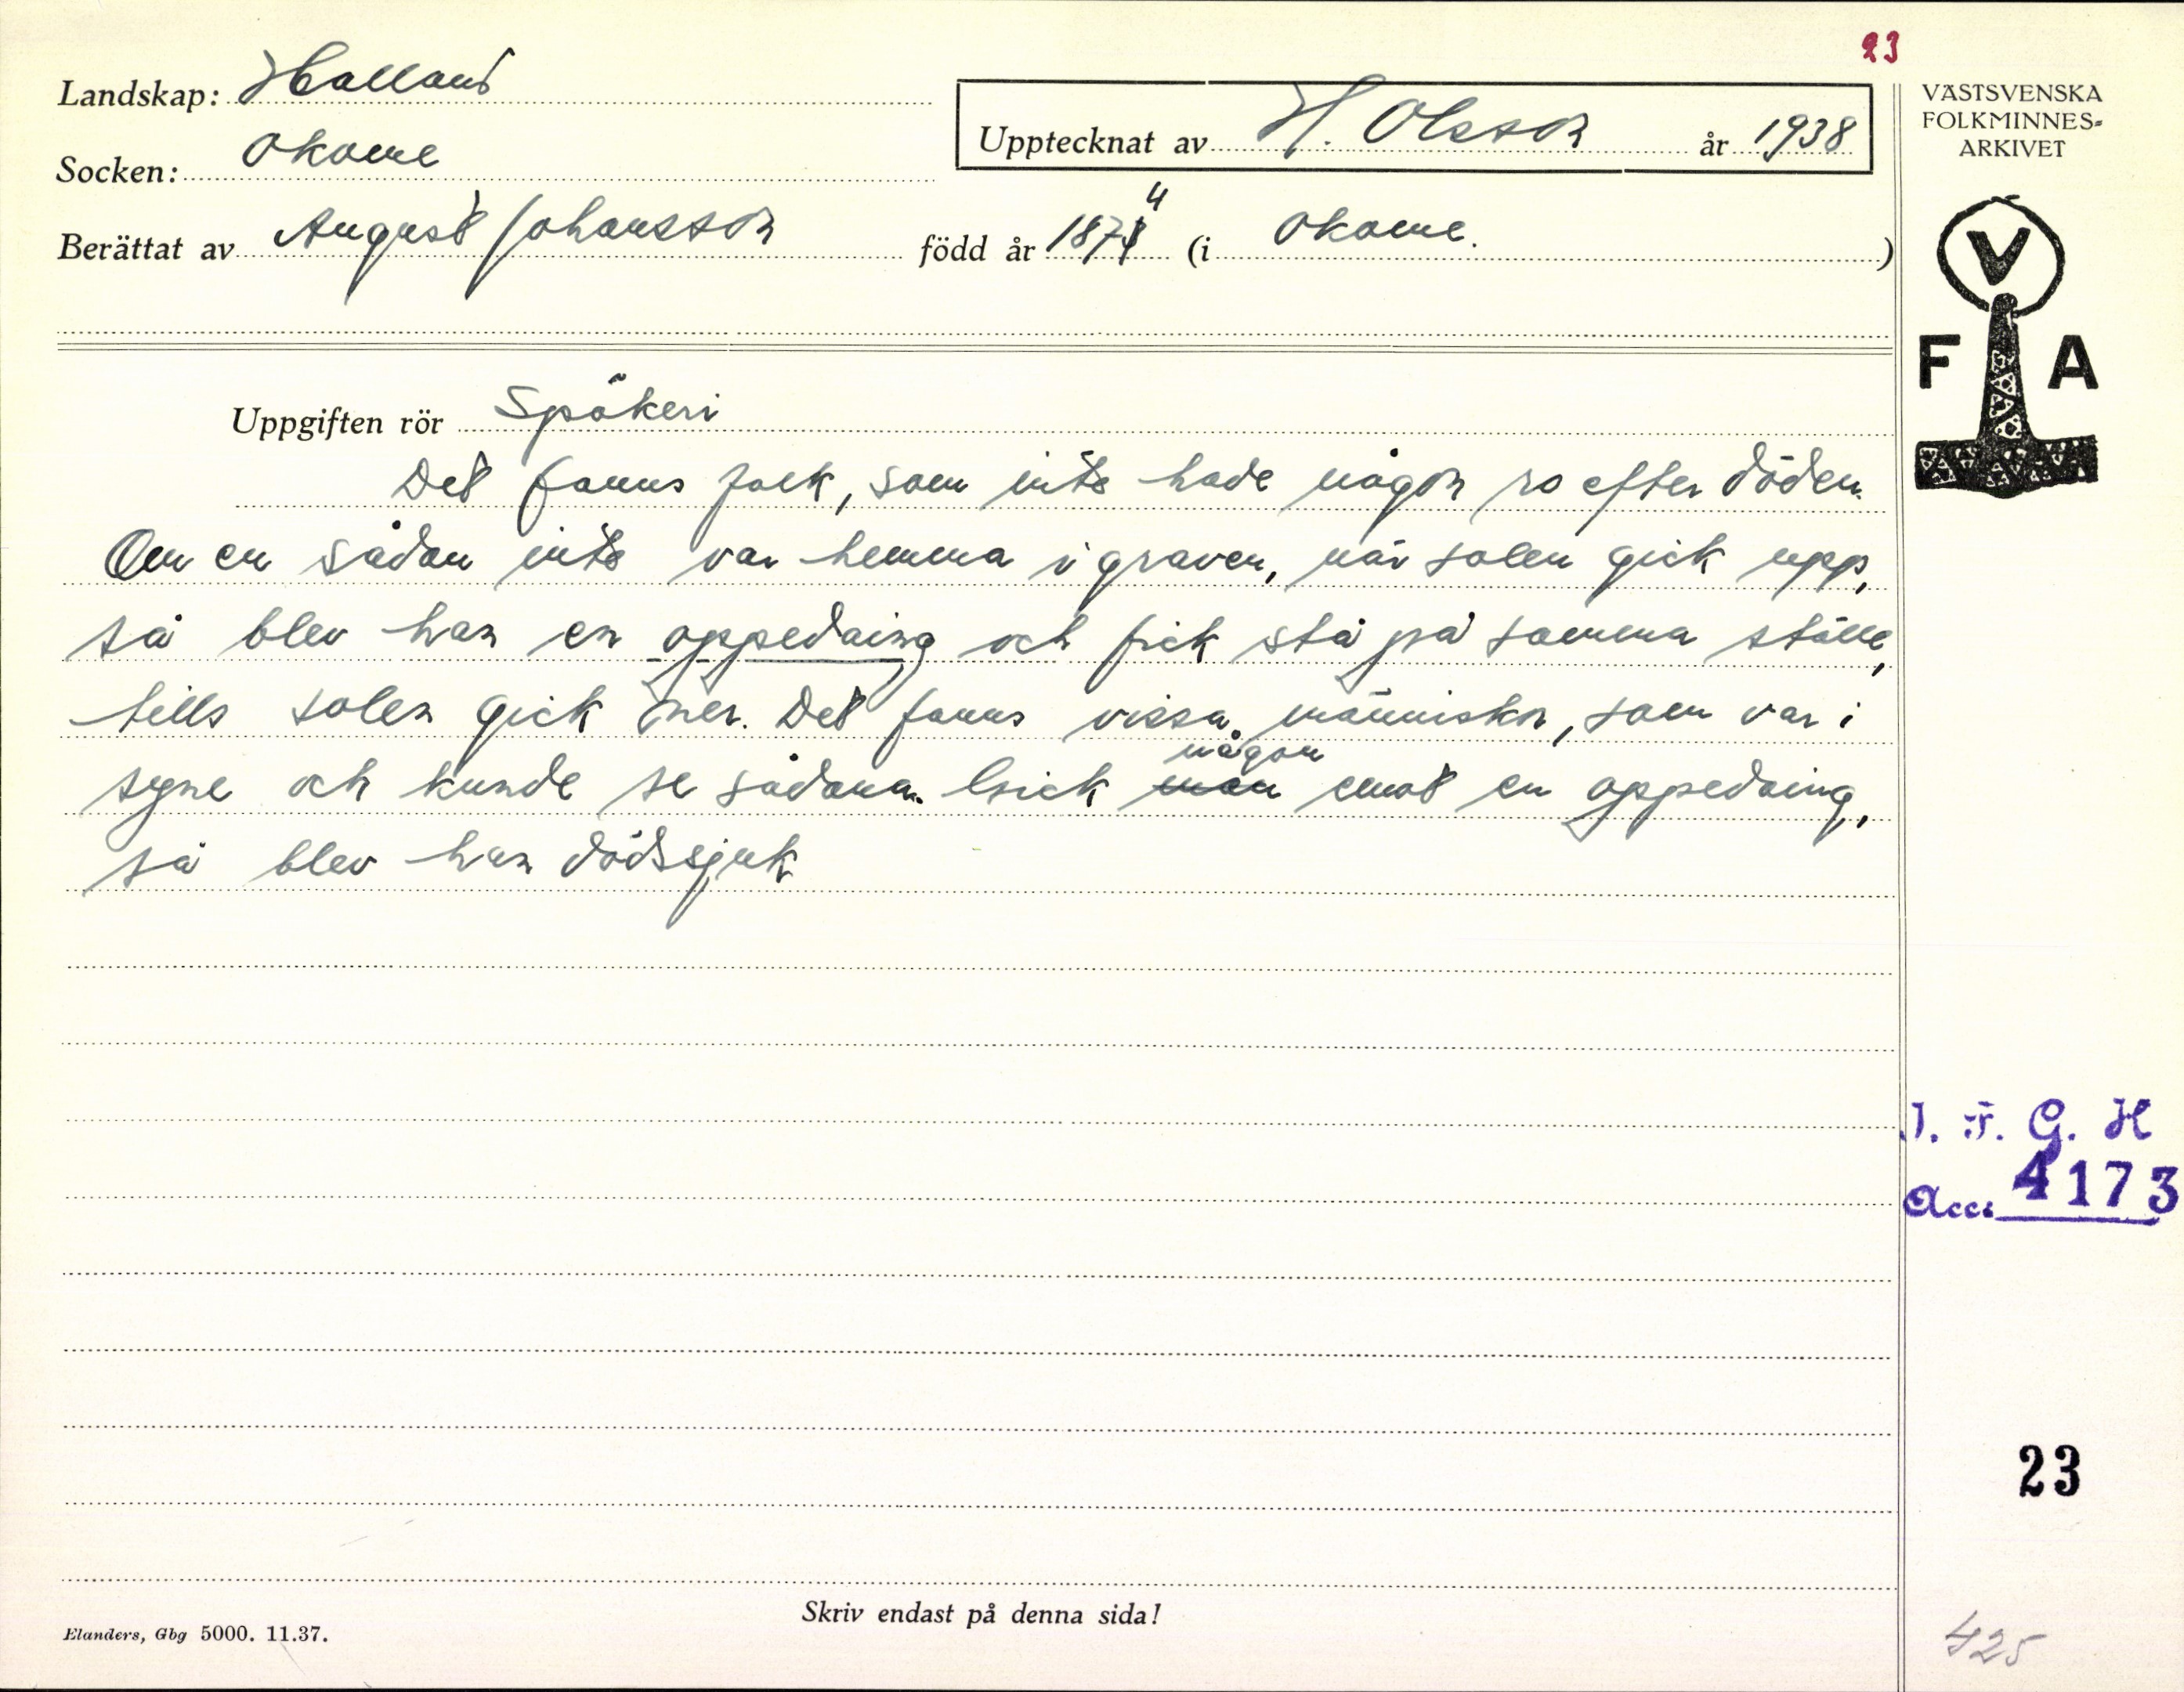 23
Landskap: Halland
Upptecknat av H. Olsson år 1938
Socken: Okome
Berättat av August Johansson född år 1874 (i Okome.)
VÄSTSVENSKA
FOLKMINNES-
ARKIVET
V
F A
Uppgiften rör Spökeri
Det fanns folk, som inte hade någon ro efter döden.
Om en sådan inte var hemma i graven, när solen gick upp,
så blev han en oppedaing och fick stå på samma ställe,
tills solen gick ner. Det fanns vissa människor, som var i
syne och kunde se sådana. Gick någon emot en oppedaing,
så blev han dödssjuk
I. F. G. H
Acc. 4173
23
Skriv endast på denna sida!
Elanders, Gbg 5000. 11.37.
425